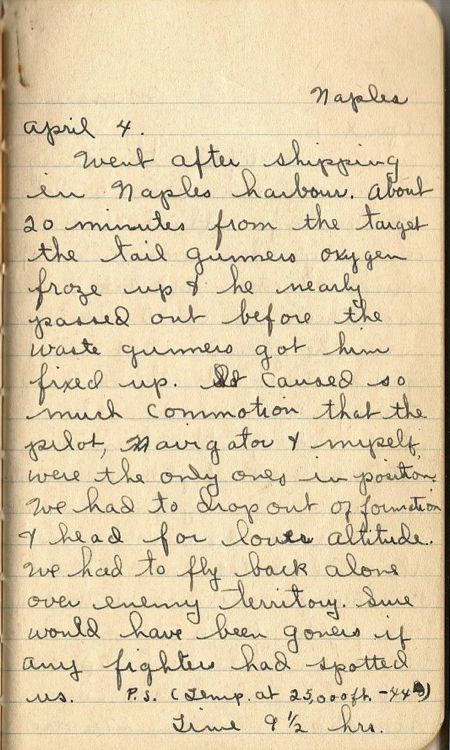 Naples
April 4.
Went after shipping
in Naples harbour. About
20 minutes from the target
the tail gunners oxygen
froze up & he nearly
passed out before the
waste gunners got him
fixed up. It caused so
much commotion that the
pilot, navigator & myself,
were the only ones in position.
We had to drop out of formation
& head for lower altitude.
We had to fly back alone
over enemy territory. Sure
would have been goners if
any fighters had spotted
us. P.S. (Temp. at 25,000 ft. -44°)
Time 9 1/2 hrs.